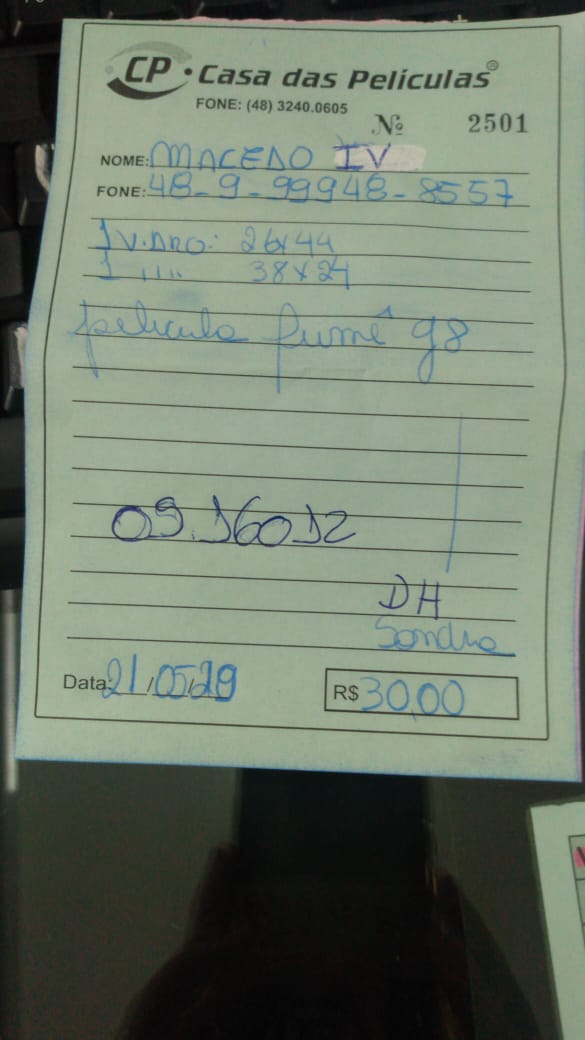 CP · Casa das Películas®
FONE: (48) 3240.0605
Nº 2501
NOME: MACEDO IV
FONE: 48-9-99948-8557
1 VIDRO: 26x44
1 '' '' 38x24
película fumê g8
09.16012
DH
Sandra
Data: 21/05/29
R$ 30,00